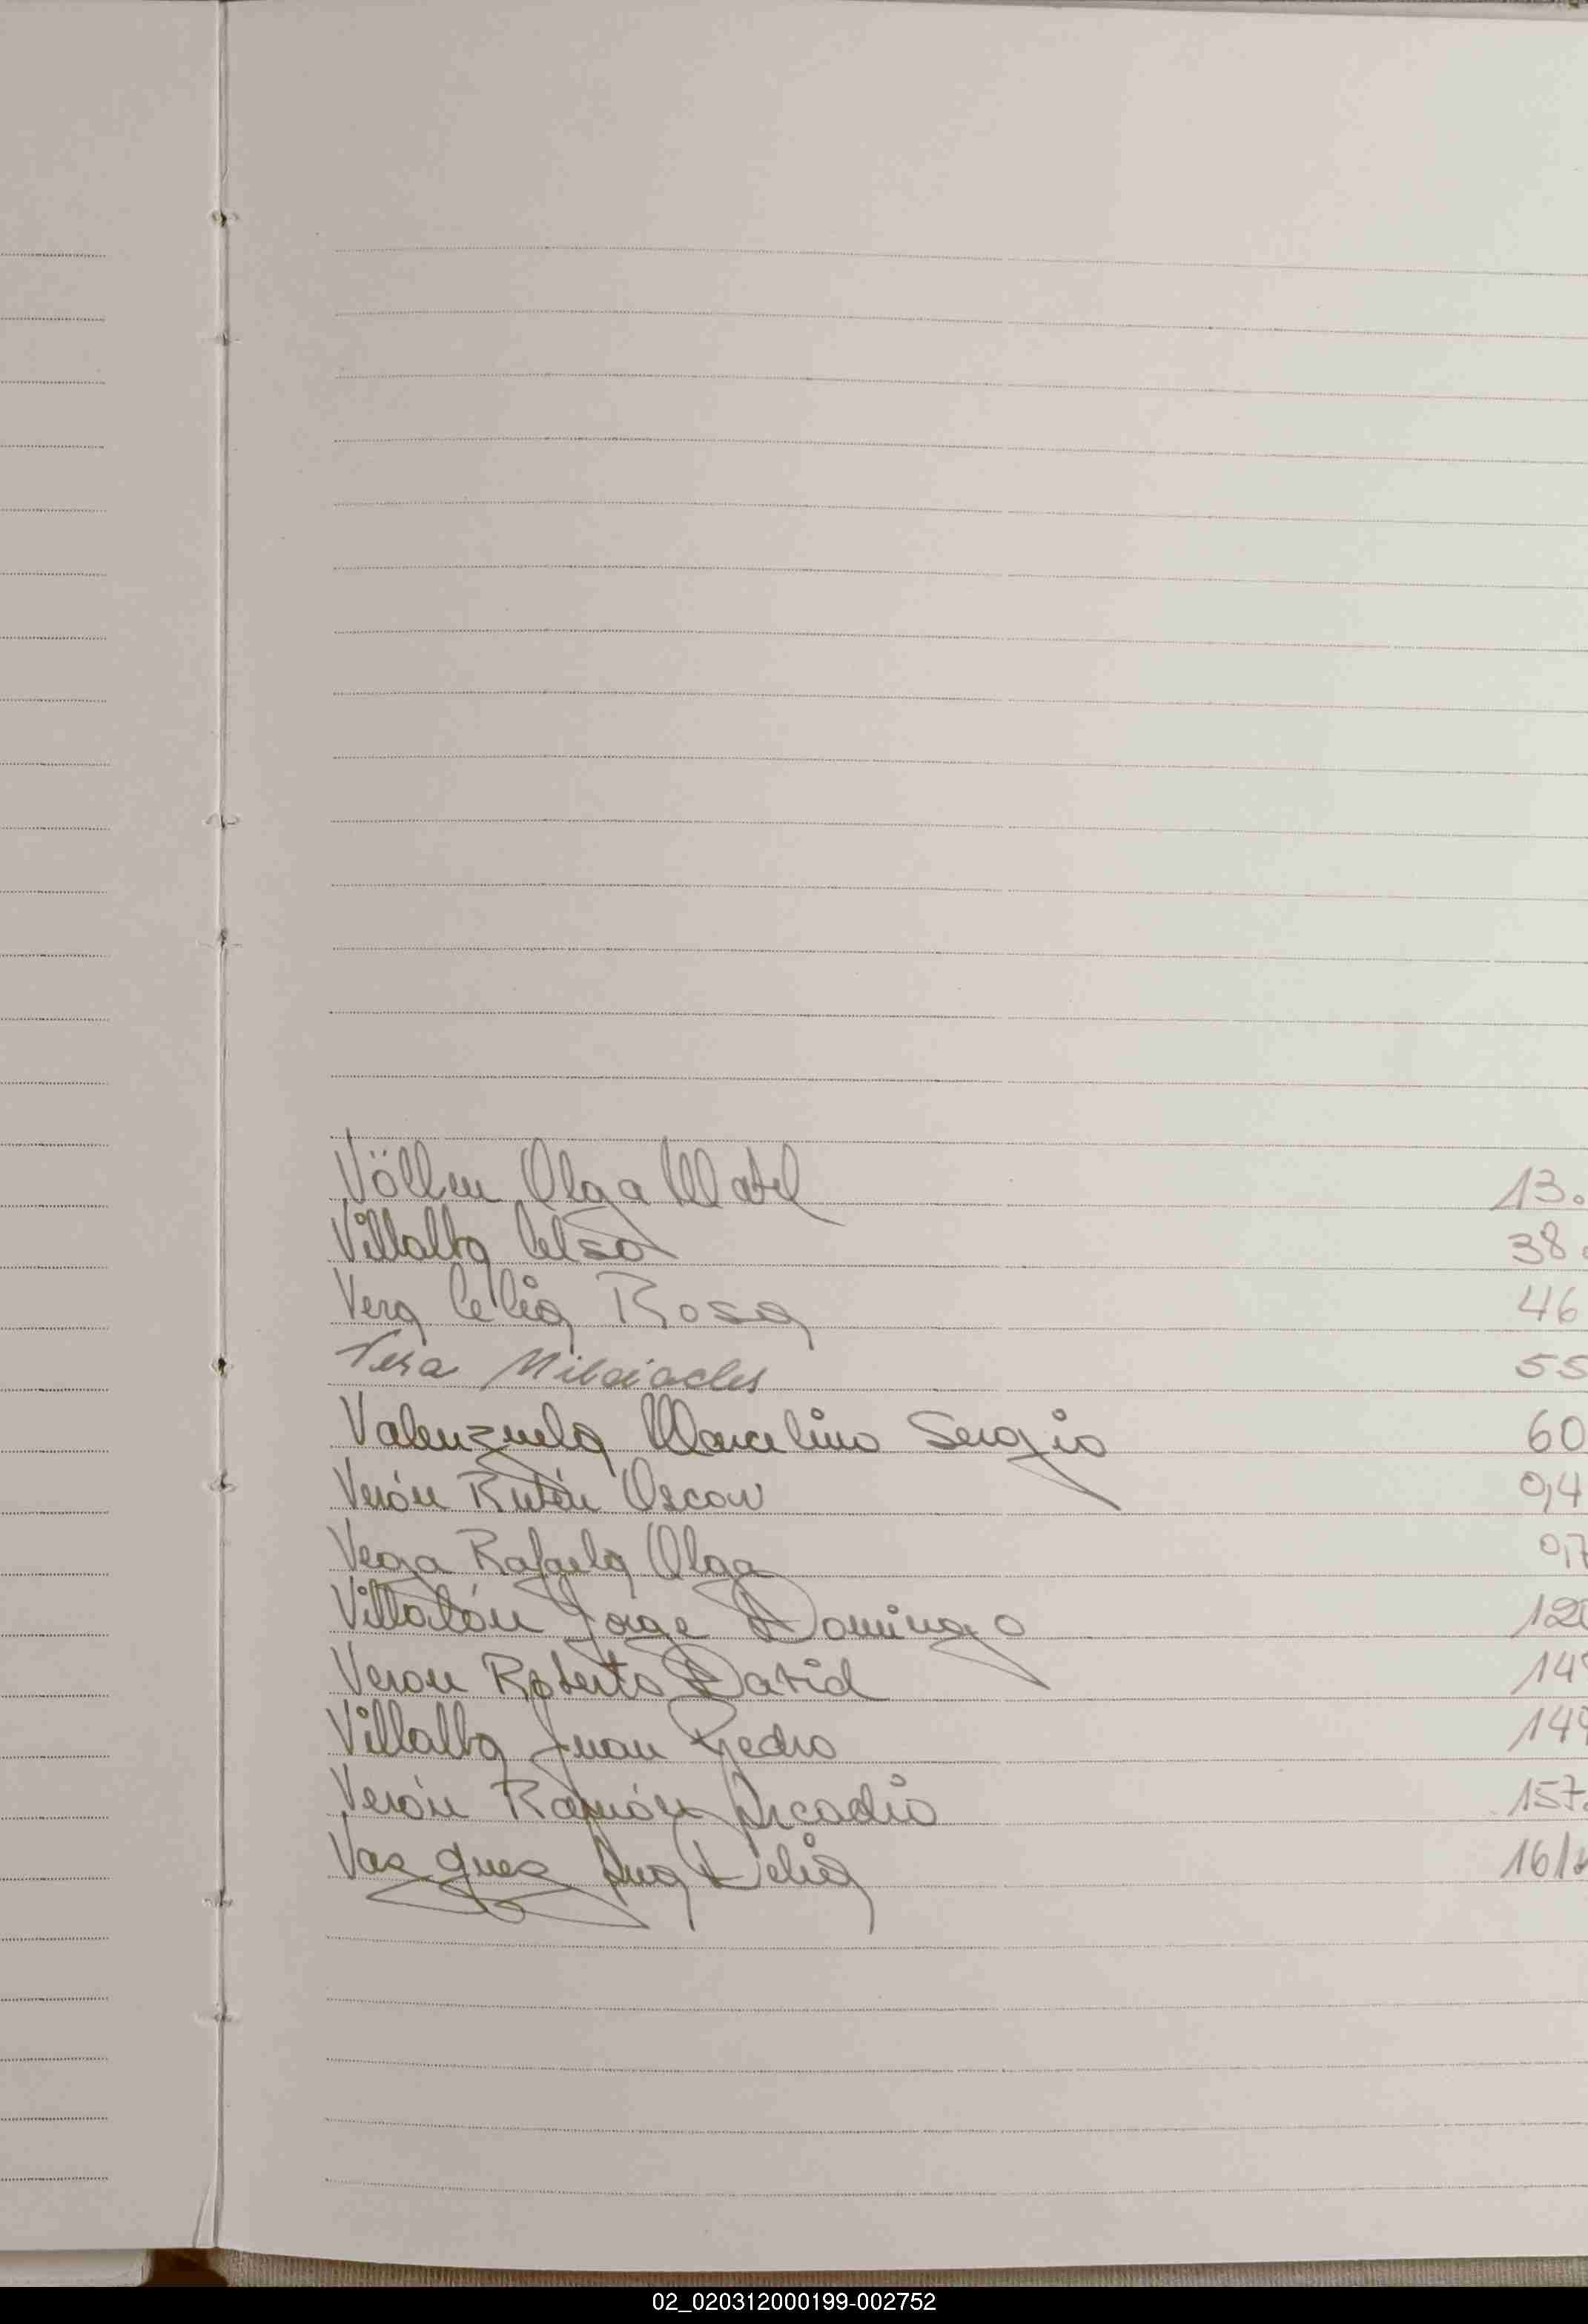 Völlm Olga Mabel 13.
Villalba Celso 38
Vera Celia Rosa 46
Vera Milciades 55
Valenzuela Marcelino Sergio 60
Verón Rubén Oscar 0,4
Vega Rafaela Olga 0,7
Villalón Jorge Domingo 12
Veron Roberto David 14
Villalba Juan Pedro 14
Verón Ramón Arcadio 157.
Vazquez Ana Delia 16/
02_020312000199-002752